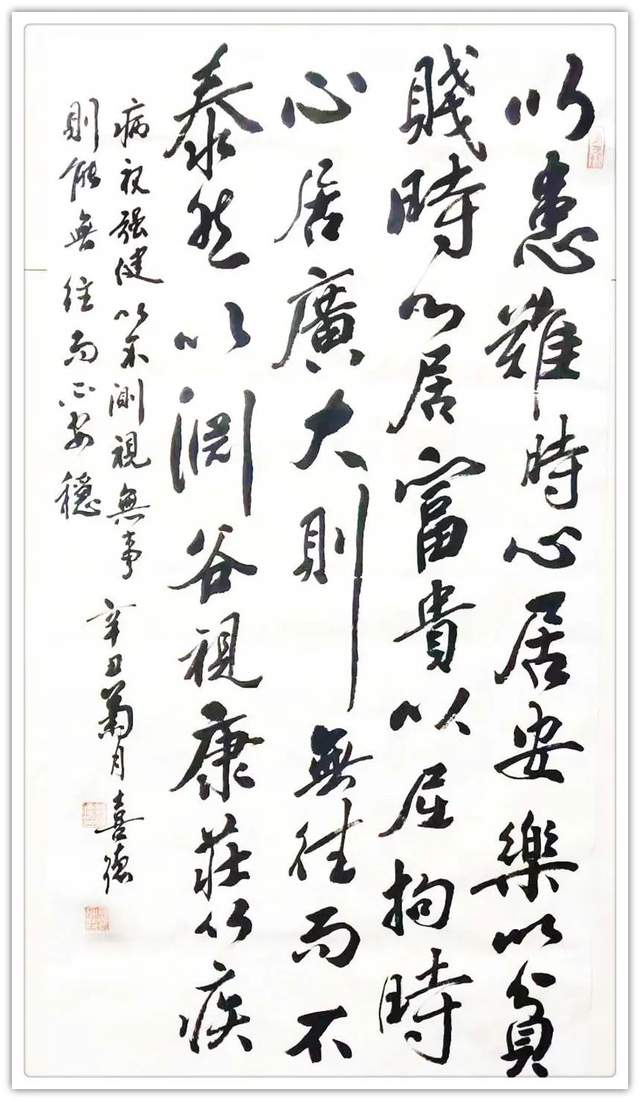 以患難時心居安樂以貧
賤時心居富貴以屈拘時
心居廣大則無往而不
泰然以淵谷視康莊以疾
病視强健以不測視無事
則能無往而不安穩
辛丑菊月喜德